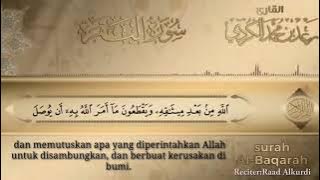 القارئ
رعد بن محمد الكردي
سورة البقرة
اللَّهِ مِنْ بَعْدِ مِيثَاقِهِ وَيَقْطَعُونَ مَا أَمَرَ اللَّهُ بِهِ أَنْ يُوصَلَ
dan memutuskan apa yang diperintahkan Allah
untuk disambungkan, dan berbuat kerusakan di
bumi.
surah
Al-Baqarah
Reciter:Raad Alkurdi